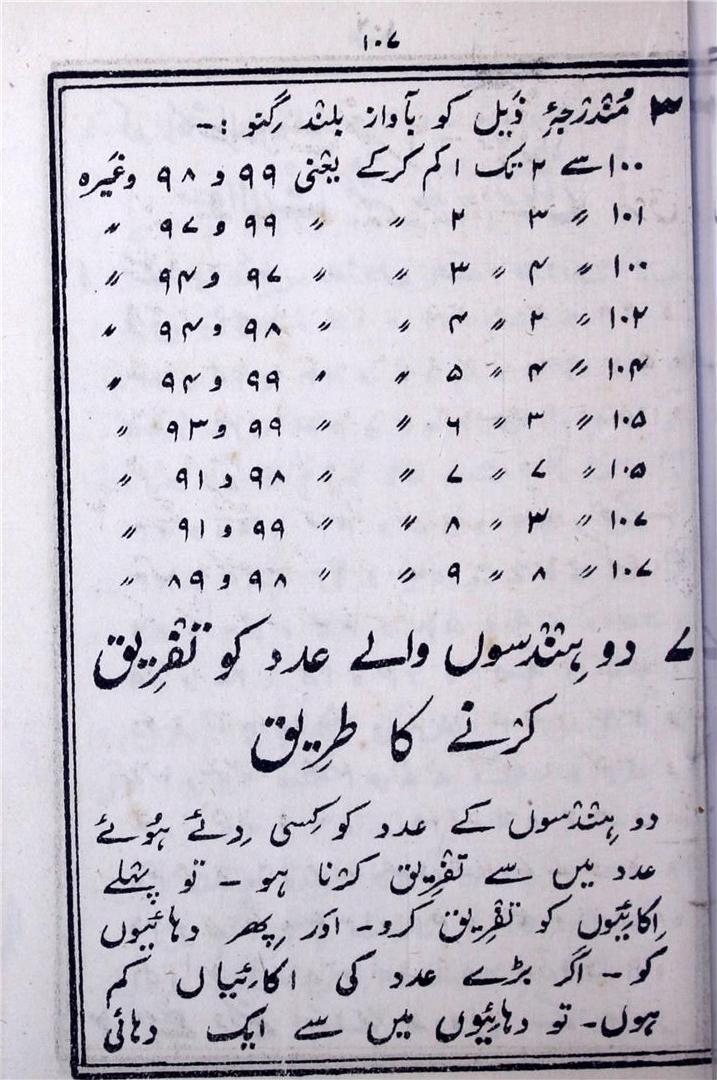 ۱۰۷
۳ مُندرجۂ ذَیل کو بآواز بلند گِنو :-
۱۰۰ سے ۲ تک ۱ کم کرکے یعنی ۹۹ و ۹۸ وغیرہ
۱۰۱ " ۳ ۲ " " ۹۹ و ۹۷ "
۱۰۰ " ۴ " ۳ " " ۹۷ و ۹۴ "
۱۰۲ " ۲ " ۴ " ۹۸ و ۹۴ "
۱۰۴ " ۴ " ۵ " " ۹۹ و ۹۴ "
۱۰۵ " ۳ " ۶ " " ۹۹ و ۹۳ "
۱۰۵ " ۷ " ۷ " " ۹۸ و ۹۱ "
۱۰۷ " ۳ " ۸ " " ۹۹ و ۹۱ "
۱۰۷ " ۸ " ۹ " " ۹۸ و ۸۹ "
۷ دو ہِندسوں والے عدد کو تفرِیق
کرنے کا طرِیق
دو ہِندسوں کے عدد کو کِسی دِئے ہُوئے
عدد میں سے تفرِیق کرنا ہو ۔ تو پہلے
اِکائیوں کو تفرِیق کرو۔ اور پِھر دہائیوں
کو ۔ اگر بڑے عدد کی اکائیاں کم
ہوں۔ تو دہائیوں میں سے ایک دہائی